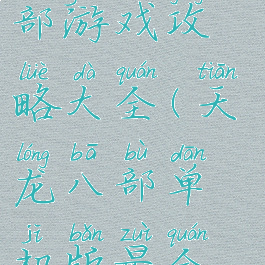 部游戏攻
lüè dà quán tiān
略大全(天
lóng bā bù dān
龙八部单
jī bǎn zuì quán
机版最全